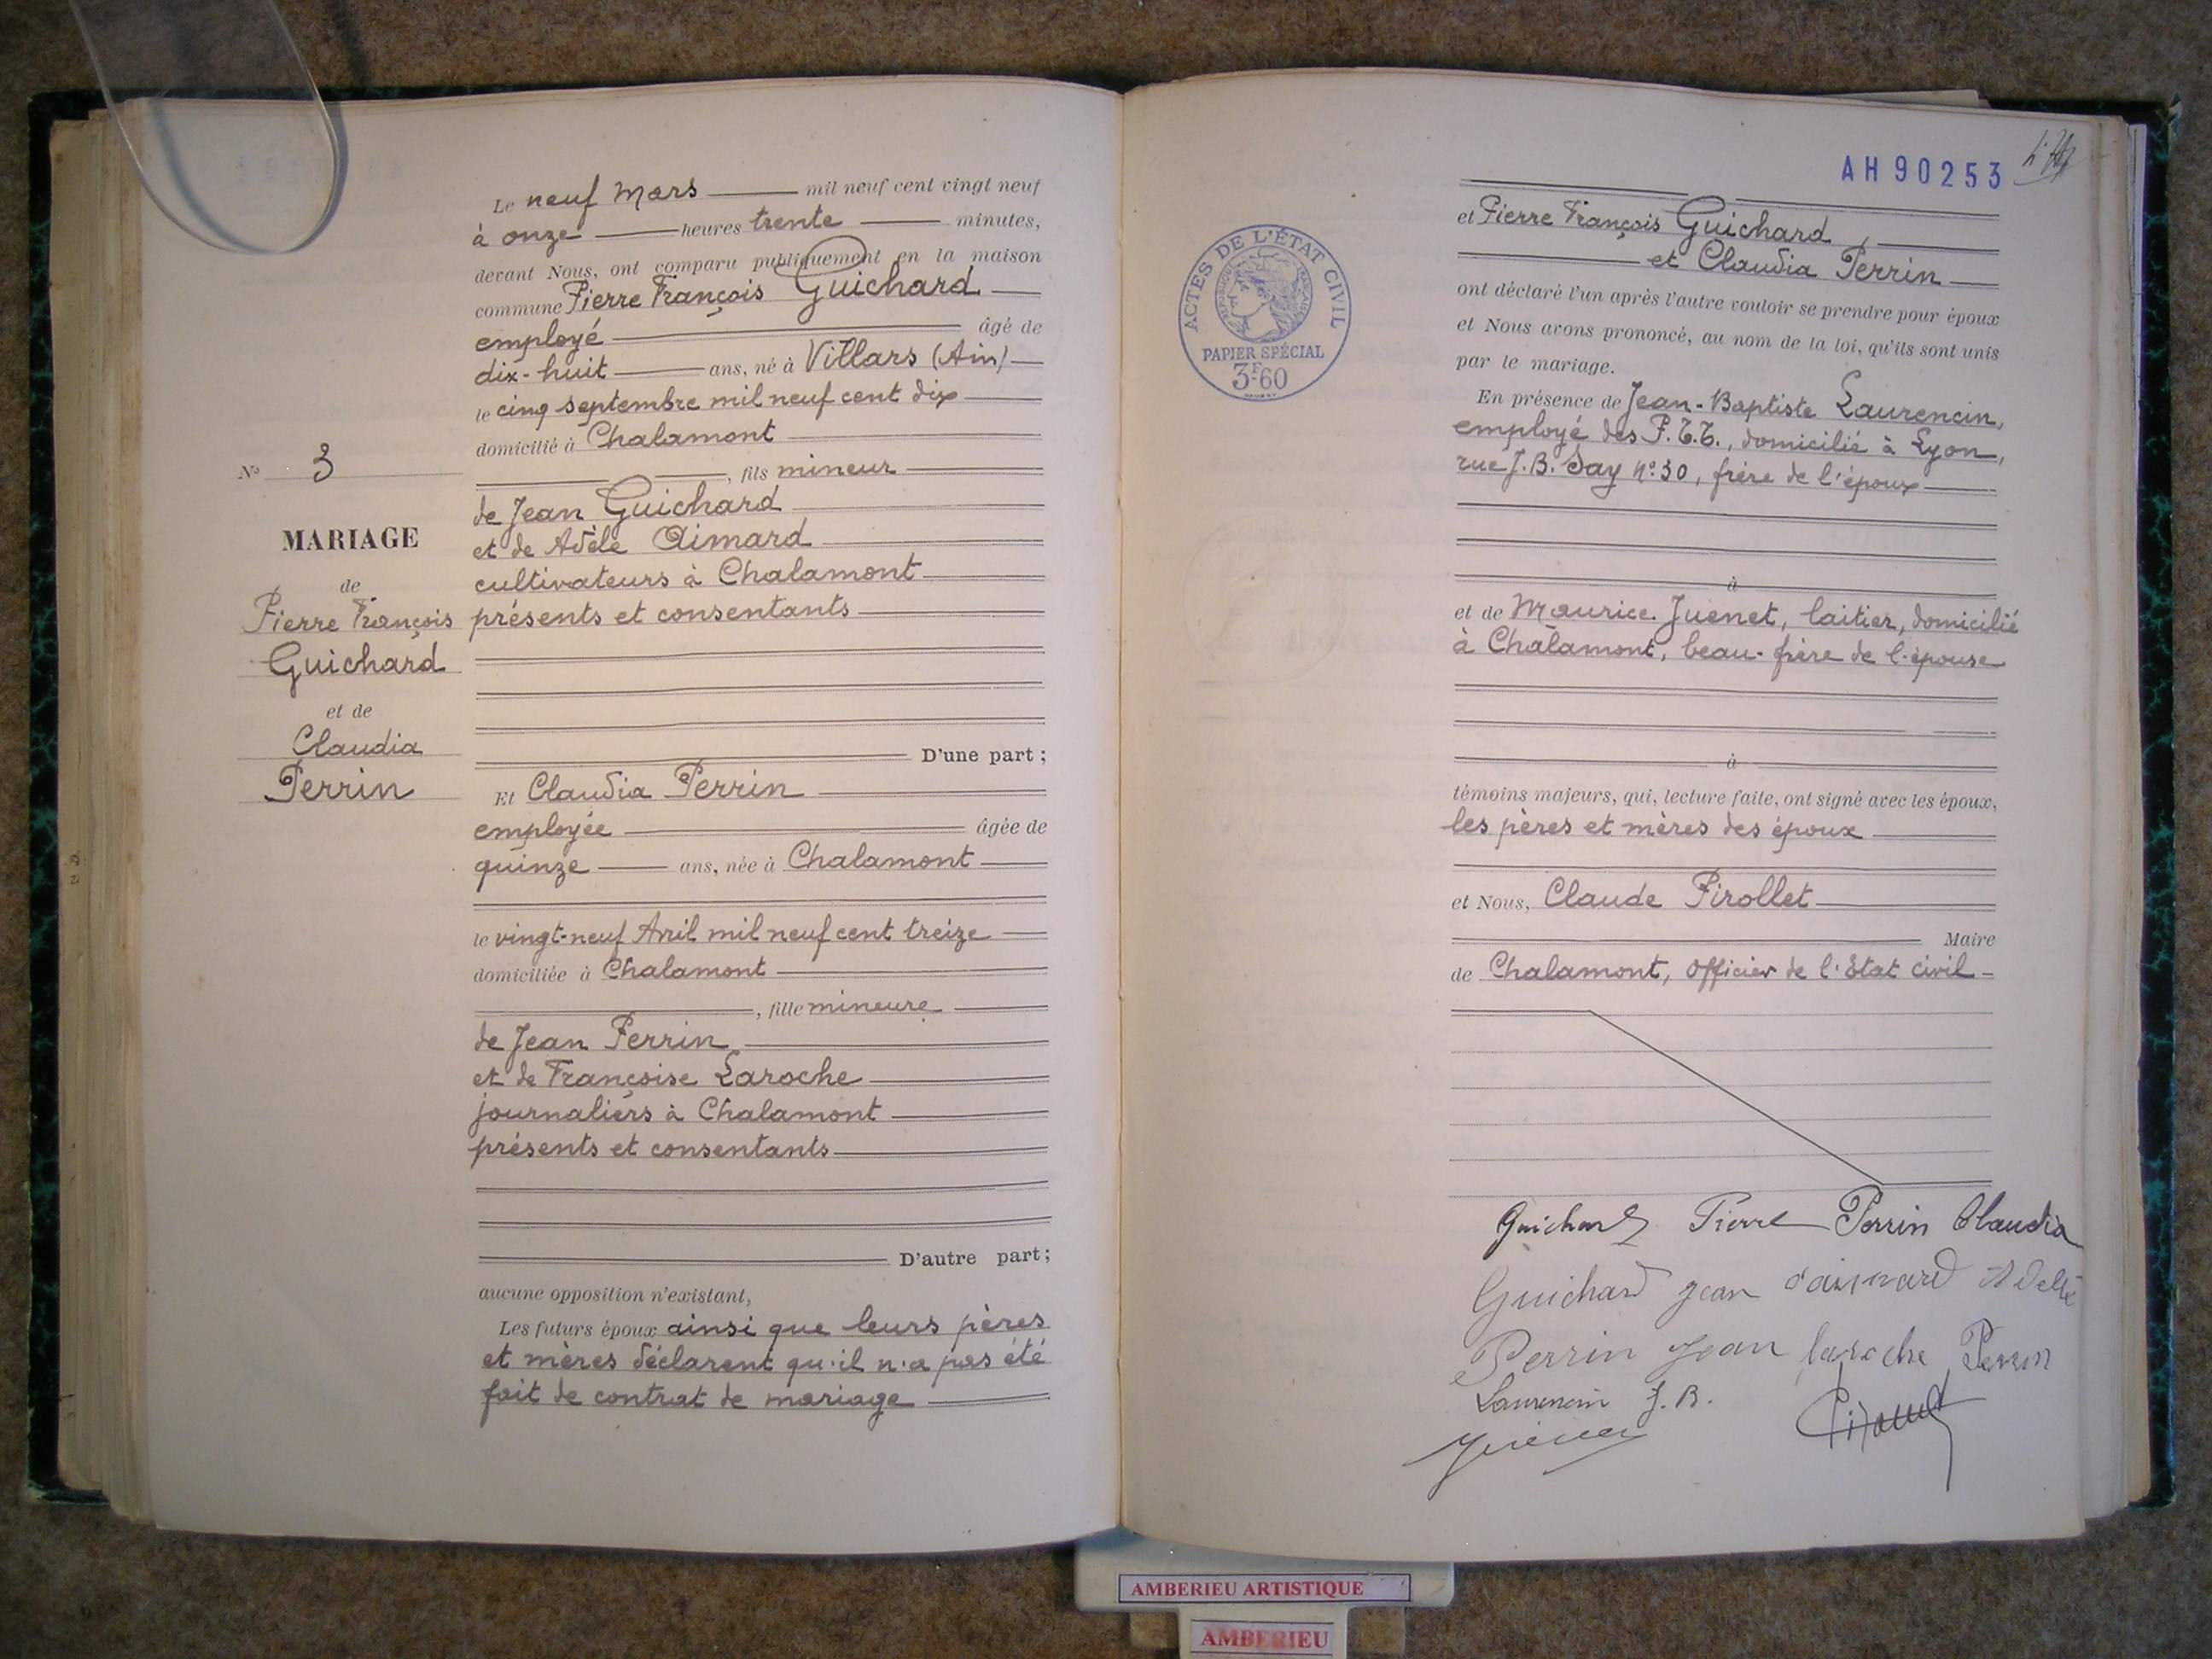 Le neuf Mars mil neuf cent vingt neuf
à onze heures trente minutes,
devant Nous, ont comparu publiquement en la maison
commune Pierre François Guichard
employé âgé de
dix-huit ans, né à Villars (Ain)
le cinq septembre mil neuf cent dix
domicilié à Chalamont
, fils mineur
de Jean Guichard
et de Adèle Aimard
cultivateurs à Chalamont
présents et consentants
D'une part ;
Et Claudia Perrin
employée âgée de
quinze ans, née à Chalamont
le vingt-neuf Avril mil neuf cent treize
domiciliée à Chalamont
, fille mineure
de Jean Perrin
et de Françoise Laroche
journaliers à Chalamont
présents et consentants
D'autre part ;
aucune opposition n'existant,
Les futurs époux ainsi que leurs pères
et mères déclarent qu'il n'a pas été
fait de contrat de mariage
N° 3
MARIAGE
de
Pierre François
Guichard
et de
Claudia
Perrin
AH90253
ACTES DE L'ÉTAT CIVIL
PAPIER SPÉCIAL
3F60
et Pierre François Guichard
et Claudia Perrin
ont déclaré l'un après l'autre vouloir se prendre pour époux
et Nous avons prononcé, au nom de la loi, qu'ils sont unis
par le mariage.
En présence de Jean-Baptiste Laurencin,
employé des P.T.T., domicilié à Lyon,
rue J.B. Say n°30, frère de l'époux
à
et de Maurice Juenet, laitier, domicilié
à Chalamont, beau-frère de l'épouse
à
témoins majeurs, qui, lecture faite, ont signé avec les époux,
les pères et mères des époux
et Nous, Claude Pirollet
Maire
de Chalamont, Officier de l'Etat civil
Guichard Pierre Perrin Claudia
Guichard Jean
Perrin Jean laroche Perrin
Laurencin J.B.
AMBERIEU ARTISTIQUE
AMBERIEU